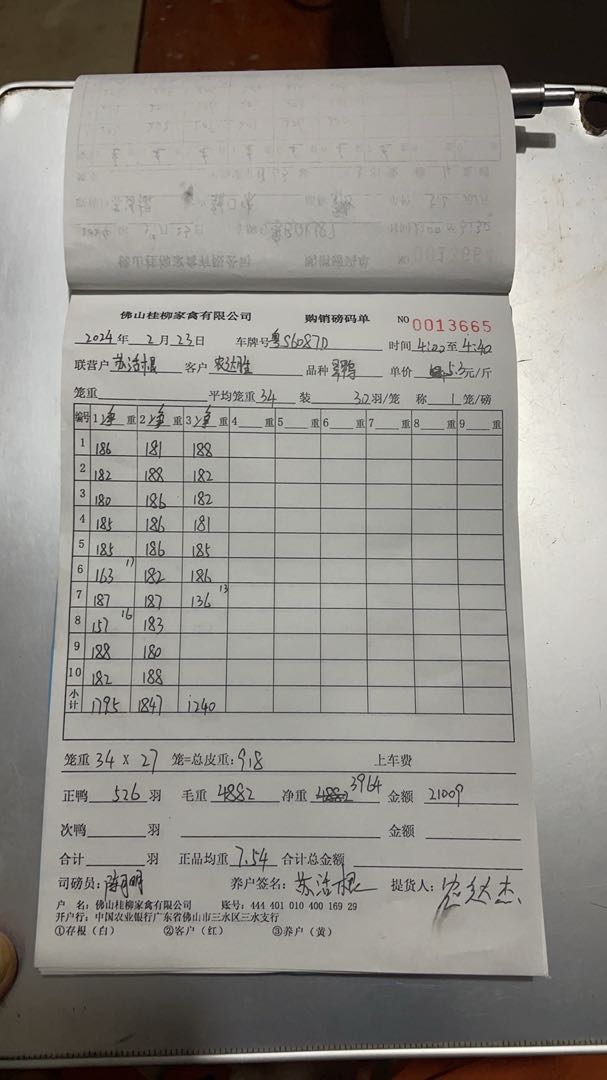 佛山桂柳家禽有限公司 购销磅码单 NO 0013665
2024年 2月 23日 车牌号 粤S6087D 时间 4:00至 4:40
联营户 苏活根 客户 农达胜 品种 单价 5.3元/斤
笼重 平均笼重 34 装 30羽/笼 称 1笼/磅
编号 1净重 2净重 3净重 4重 5重 6重 7重 8重 9重
1 186 181 188
2 182 188 182
3 180 186 182
4 185 186 181
5 185 186 185
6 163 17 182 186
7 187 187 136 13
8 157 16 183
9 188 180
10 182 188
小计 1795 1847 1240
笼重 34 X 27 笼=总皮重: 918 上车费
正鸭 526 羽 毛重 4882 净重 3964 金额 21009
次鸭 羽 金额
合计 羽 正品均重 7.54 合计总金额
司磅员: 养户签名: 苏活根 提货人:
户 名: 佛山桂柳家禽有限公司 账号: 444 401 010 400 169 29
开户行: 中国农业银行广东省佛山市三水区三水支行
①存根（白） ②客户（红） ③养户（黄）